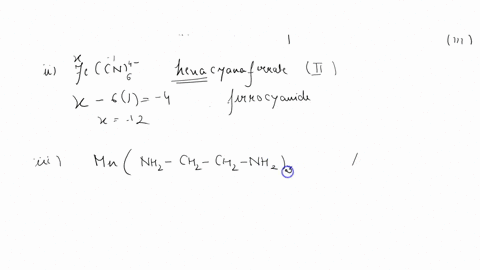 (III)
ii) Fe(CN)₆⁴⁻ hexacyanoferrate (II)
x - 6(1) = -4 ferrocyanide
x = +2
iii) Mn ( NH₂ - CH₂ - CH₂ - NH₂ )₃ /